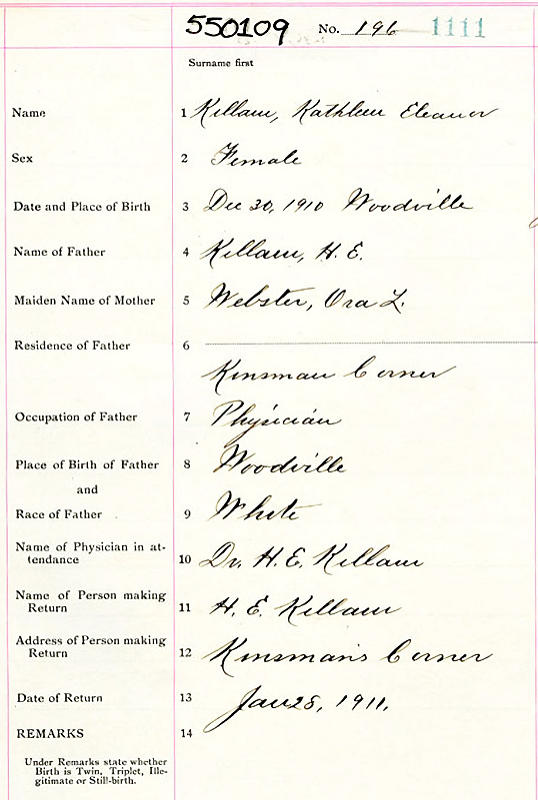 550109 No. 196 1111
Surname first
Name 1 Killam, Kathleen Eleanor
Sex 2 Female
Date and Place of Birth 3 Dec 30, 1910 Woodville
Name of Father 4 Killam, H. E.
Maiden Name of Mother 5 Webster, Ora L.
Residence of Father 6
Kinsman Corner
Occupation of Father 7 Physician
Place of Birth of Father 8 Woodville
and
Race of Father 9 White
Name of Physician in at-
tendance 10 Dr. H. E. Killam
Name of Person making
Return 11 H. E. Killam
Address of Person making
Return 12 Kinsman's Corner
Date of Return 13 Jan 28, 1911.
REMARKS 14
Under Remarks state whether
Birth is Twin, Triplet, Ille-
gitimate or Still-birth.